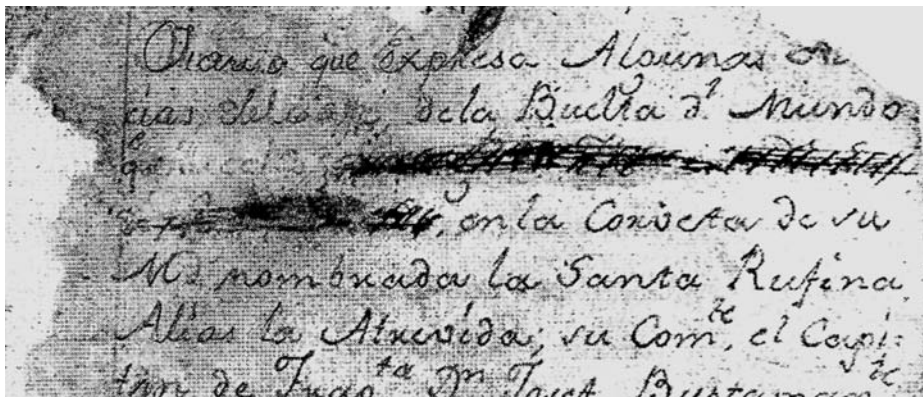 Diario que Expresa Algunas
cias del viaje, dela Buelta dl Mundo
que
en la Corveta de su
Md nombrada la Santa Rufina
Alias la Atrevida; su Comte, el Capi=
tan de Fragta Dn Josef Bustamante